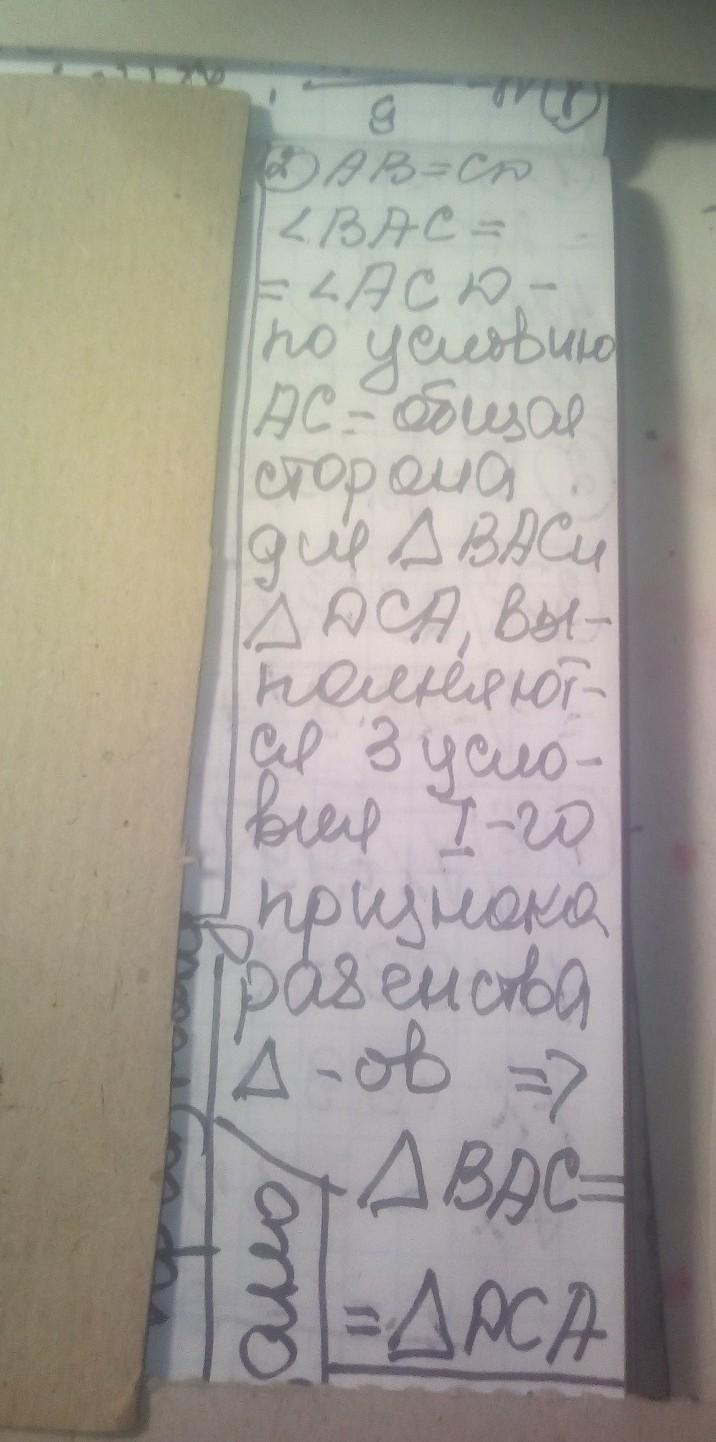 9
② AB=CD
∠BAC=
=∠ACD-
по условию
AC-общая
сторона
для △BAC и
△DCA, вы-
полняют-
ся 3 усло-
вия I-го
признака
равенства
△-ов =>
△BAC=
=△DCA